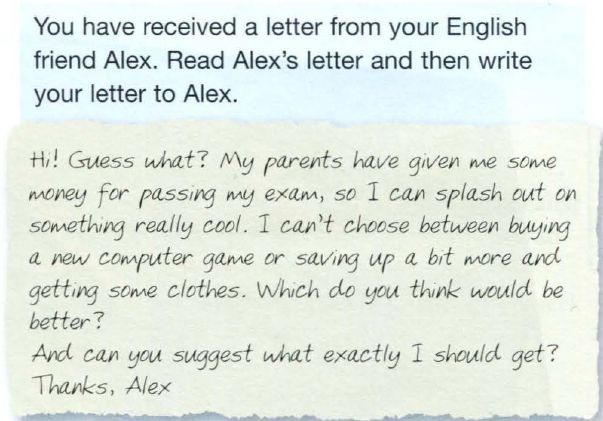 You have received a letter from your English
friend Alex. Read Alex's letter and then write
your letter to Alex.
Hi! Guess what? My parents have given me some
money for passing my exam, so I can splash out on
something really cool. I can't choose between buying
a new computer game or saving up a bit more and
getting some clothes. Which do you think would be
better?
And can you suggest what exactly I should get?
Thanks, Alex